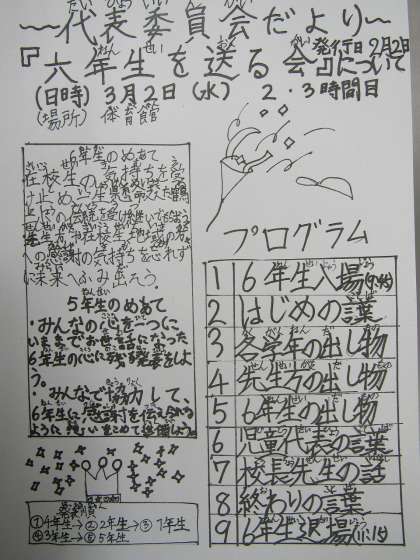 〜代表委員会だより〜
発行日 2月2日
『六年生を送る会』について
(日時) 3月2日(水) 2・3時間目
(場所) 体育館
6年生のめあて
在校生の気持ちを受
け止め一生懸命
の伝統を受け継いで
在校生
への感謝の気持ちを忘れず
に未来へふみ出そう。
5年生のめあて
・みんなの心を一つに
いままでお世話になった
6年生の心に残る発表をしよ
う。
・みんなで協力して、
6年生に感謝を伝え
ように
①4年生→②2年生→③1年生
④3年生→⑤5年生
プログラム
1 6年生入場
2 はじめの言葉
3 各学年の出し物
4 先生方の出し物
5 6年生の出し物
6 児童代表の言葉
7 校長先生の話
8 終わりの言葉
9 6年生退場(11:15)